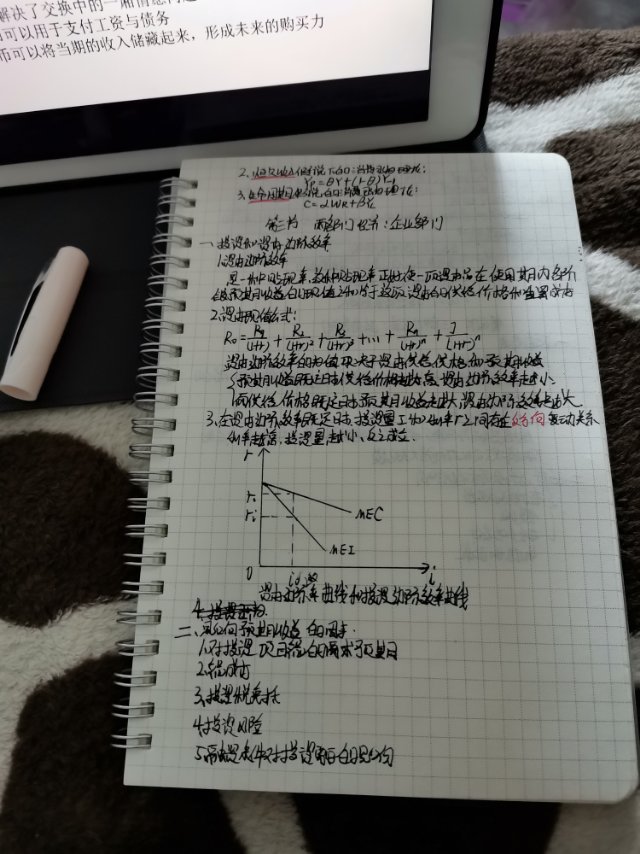 解决了交换中的一
可以用于支付工资与债务
币可以将当期的收入储藏起来，形成未来的购买力
2.
Yp=θY+(1-θ)Y-1
3.
C=αWR+βYL
第三节 两部门经济：企业部门
一、投资和资本边际效率
1.资本边际效率
是一种贴现率，这种贴现率正好使一项资本品在使用期内各
预期收益的现值之和等于这项资本的供给价格和重置成本
2.资本现值公式：
R0 = R1/(1+r) + R2/(1+r)² + R3/(1+r)³ + ... + Rn/(1+r)ⁿ + J/(1+r)ⁿ
资本边际效率的数值取决于资本供给价格和预期收益
预期收益既定时，供给价格越高，资本边际效率越小
而供给价格既定时，预期收益越大，资本边际效率越大
3.在资本边际效率既定时，投资量I和利率r之间存在反方向变动关系
利率越高，投资量越小，反之成立．
r
r0
r1
MEC
MEI
0
i0
i
资本边际效率曲线和投资边际效率曲线
二、影响预期收益的因素
1.对投资项目产品的需求预期
2.产品成本
3.投资税抵
4.投资风险
5.融资条件对投资